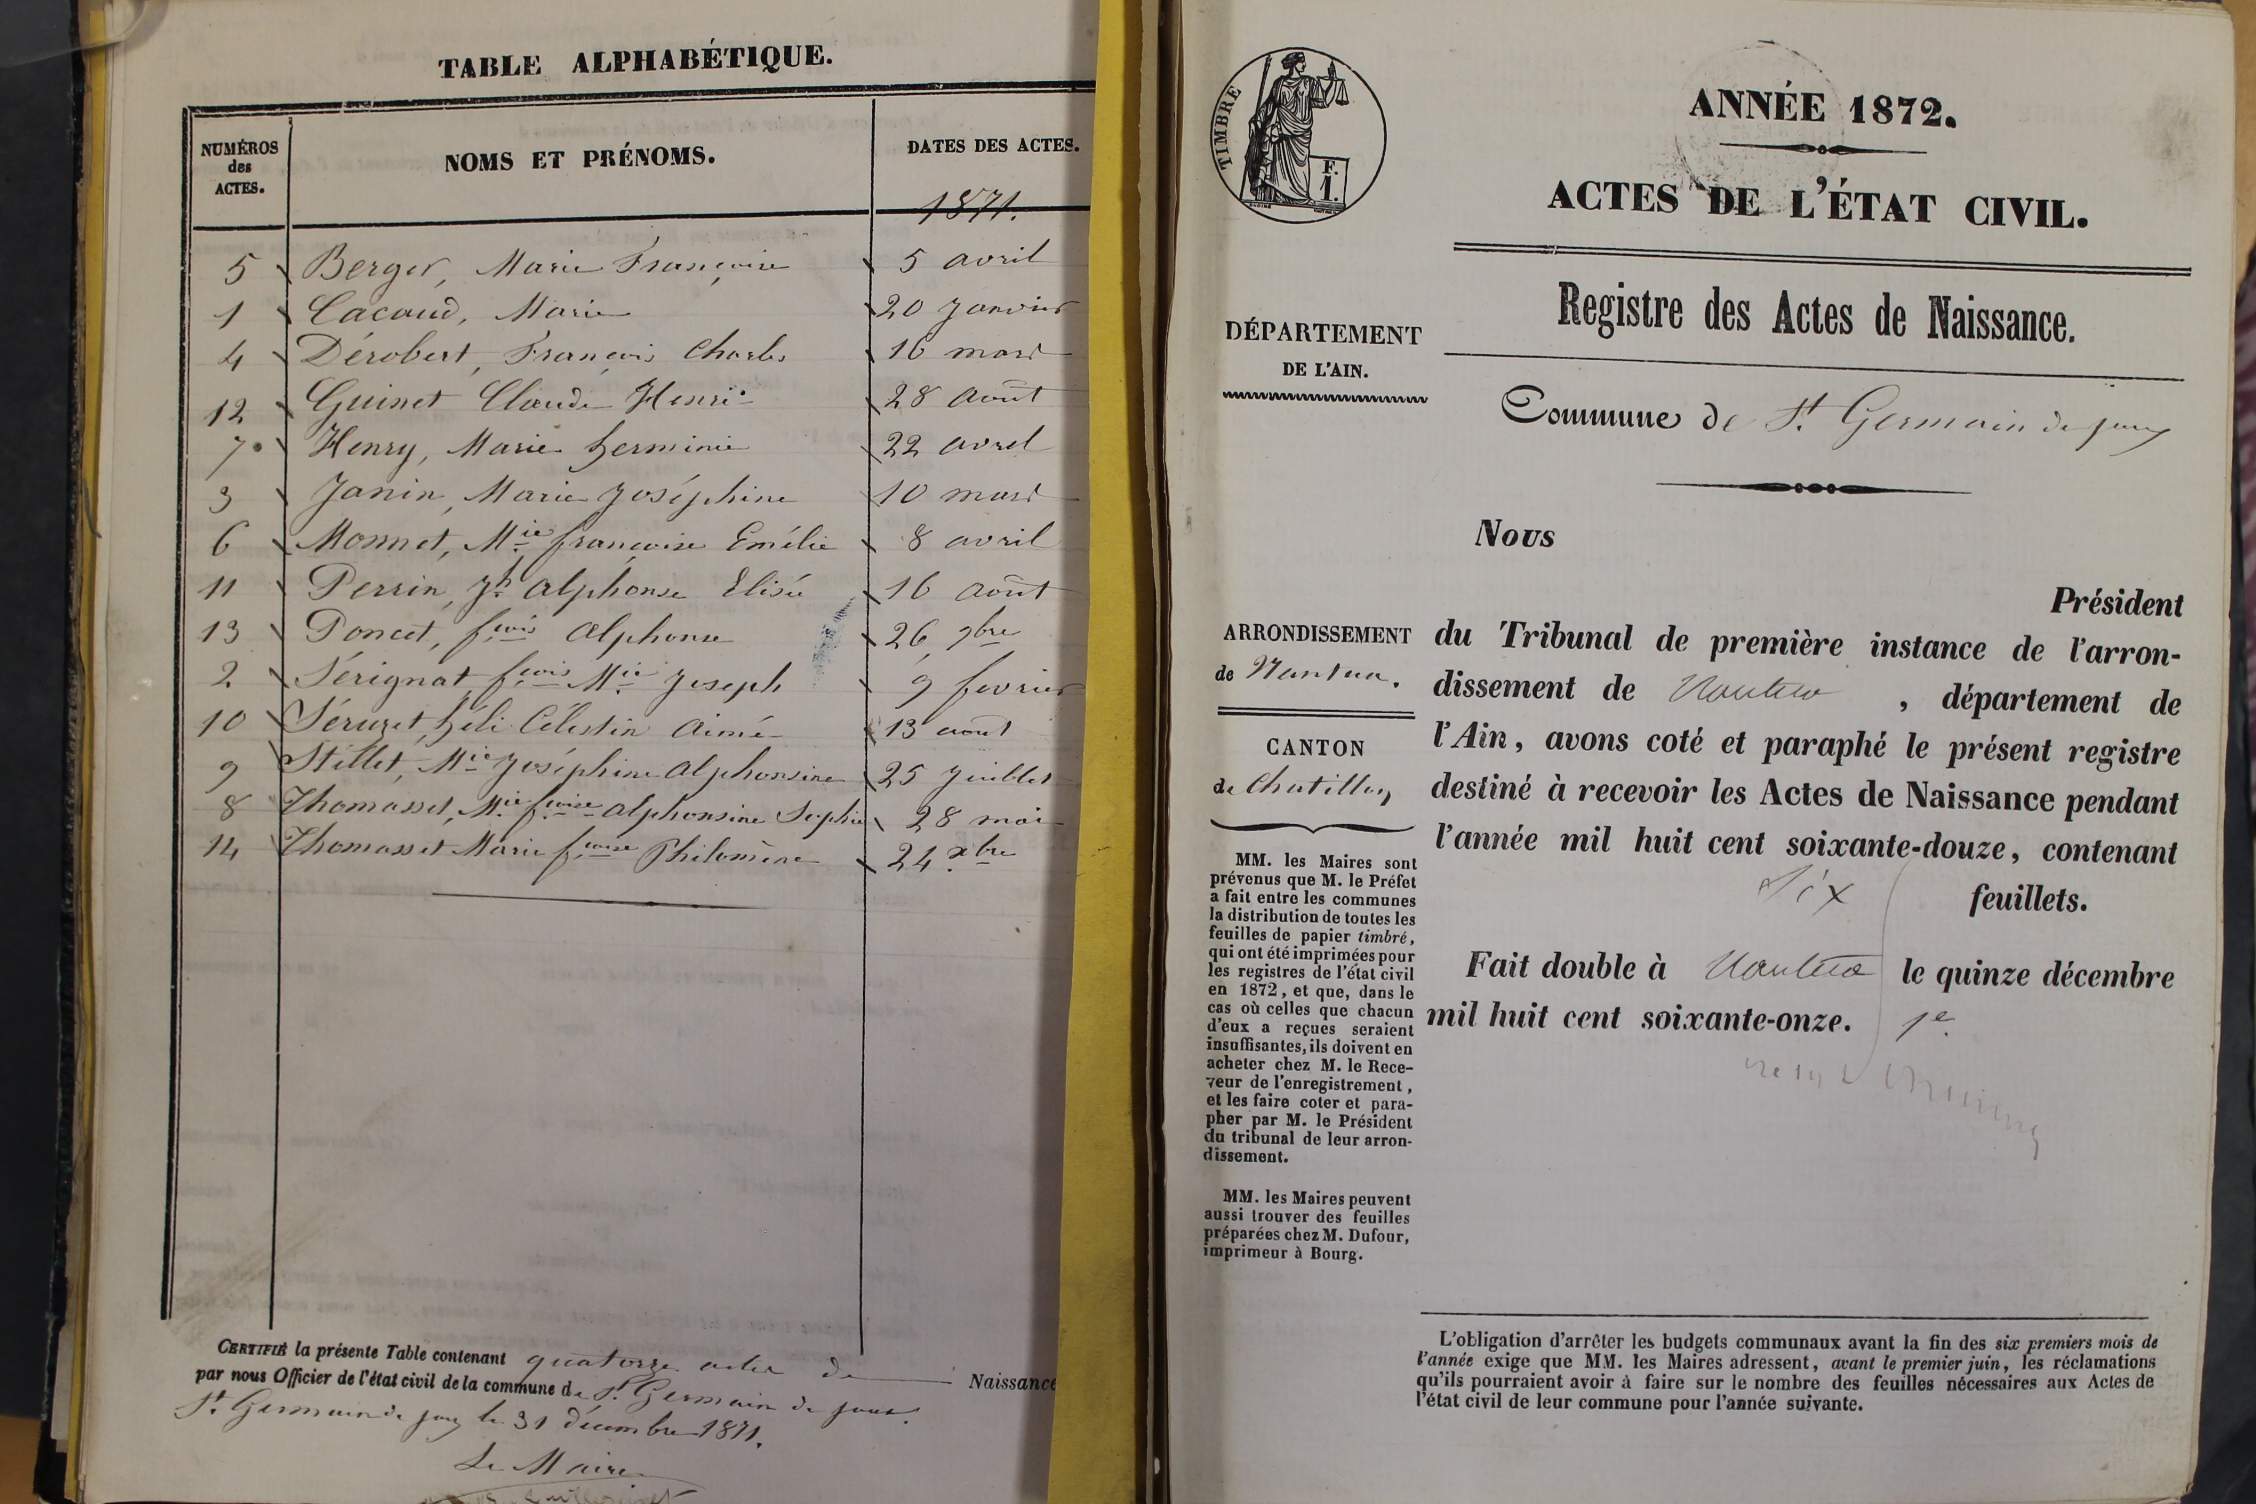 TABLE ALPHABÉTIQUE.
NUMÉROS des ACTES.
NOMS ET PRÉNOMS.
DATES DES ACTES.
1871.
5 Berger, Marie Françoise 5 avril
1 Cacaud, Marie 20 Janvier
4 Dérobert, François Charles 16 mars
12 Guinet Claude Henri 28 août
7 Henry, Marie herminie 22 avril
3 Janin, Marie Joséphine 10 mars
6 Monnet, Mie françoise Emélie 8 avril
11 Perrin, Jh alphonse Elisée 16 août
13 Poncet, fçois alphonse 26 9bre
2 Sérignat fçois Mie Joseph 9 fevrier
10 Séruzet, héli Célestin aimé 13 août
9 Stillet, Mie Joséphine alphonsine 25 Juillet
8 Thomasset, Mie fçoise alphonsine Sophie 28 mai
14 Thomasset Marie fçoise Philomène 24 xbre
CERTIFIÉ la présente Table contenant quatorze actes de Naissance
par nous Officier de l'état civil de la commune de St Germain de joux.
St Germain de joux le 31 décembre 1871.
Le Maire
TIMBRE
F.
1.
ANNÉE 1872.
ACTES DE L'ÉTAT CIVIL.
Registre des Actes de Naissance.
DÉPARTEMENT
DE L'AIN.
Commune de St Germain de joux
ARRONDISSEMENT
de Nantua.
CANTON
de Chatillon
MM. les Maires sont
prévenus que M. le Préfet
a fait entre les communes
la distribution de toutes les
feuilles de papier timbré,
qui ont été imprimées pour
les registres de l'état civil
en 1872, et que, dans le
cas où celles que chacun
d'eux a reçues seraient
insuffisantes, ils doivent en
acheter chez M. le Rece-
veur de l'enregistrement,
et les faire coter et para-
pher par M. le Président
du tribunal de leur arron-
dissement.
MM. les Maires peuvent
aussi trouver des feuilles
préparées chez M. Dufour,
imprimeur à Bourg.
Nous
Président
du Tribunal de première instance de l'arron-
dissement de Nantua, département de
l'Ain, avons coté et paraphé le présent registre
destiné à recevoir les Actes de Naissance pendant
l'année mil huit cent soixante-douze, contenant
Six feuillets.
Fait double à Nantua le quinze décembre
mil huit cent soixante-onze.
L'obligation d'arrêter les budgets communaux avant la fin des six premiers mois de
l'année exige que MM. les Maires adressent, avant le premier juin, les réclamations
qu'ils pourraient avoir à faire sur le nombre des feuilles nécessaires aux Actes de
l'état civil de leur commune pour l'année suivante.